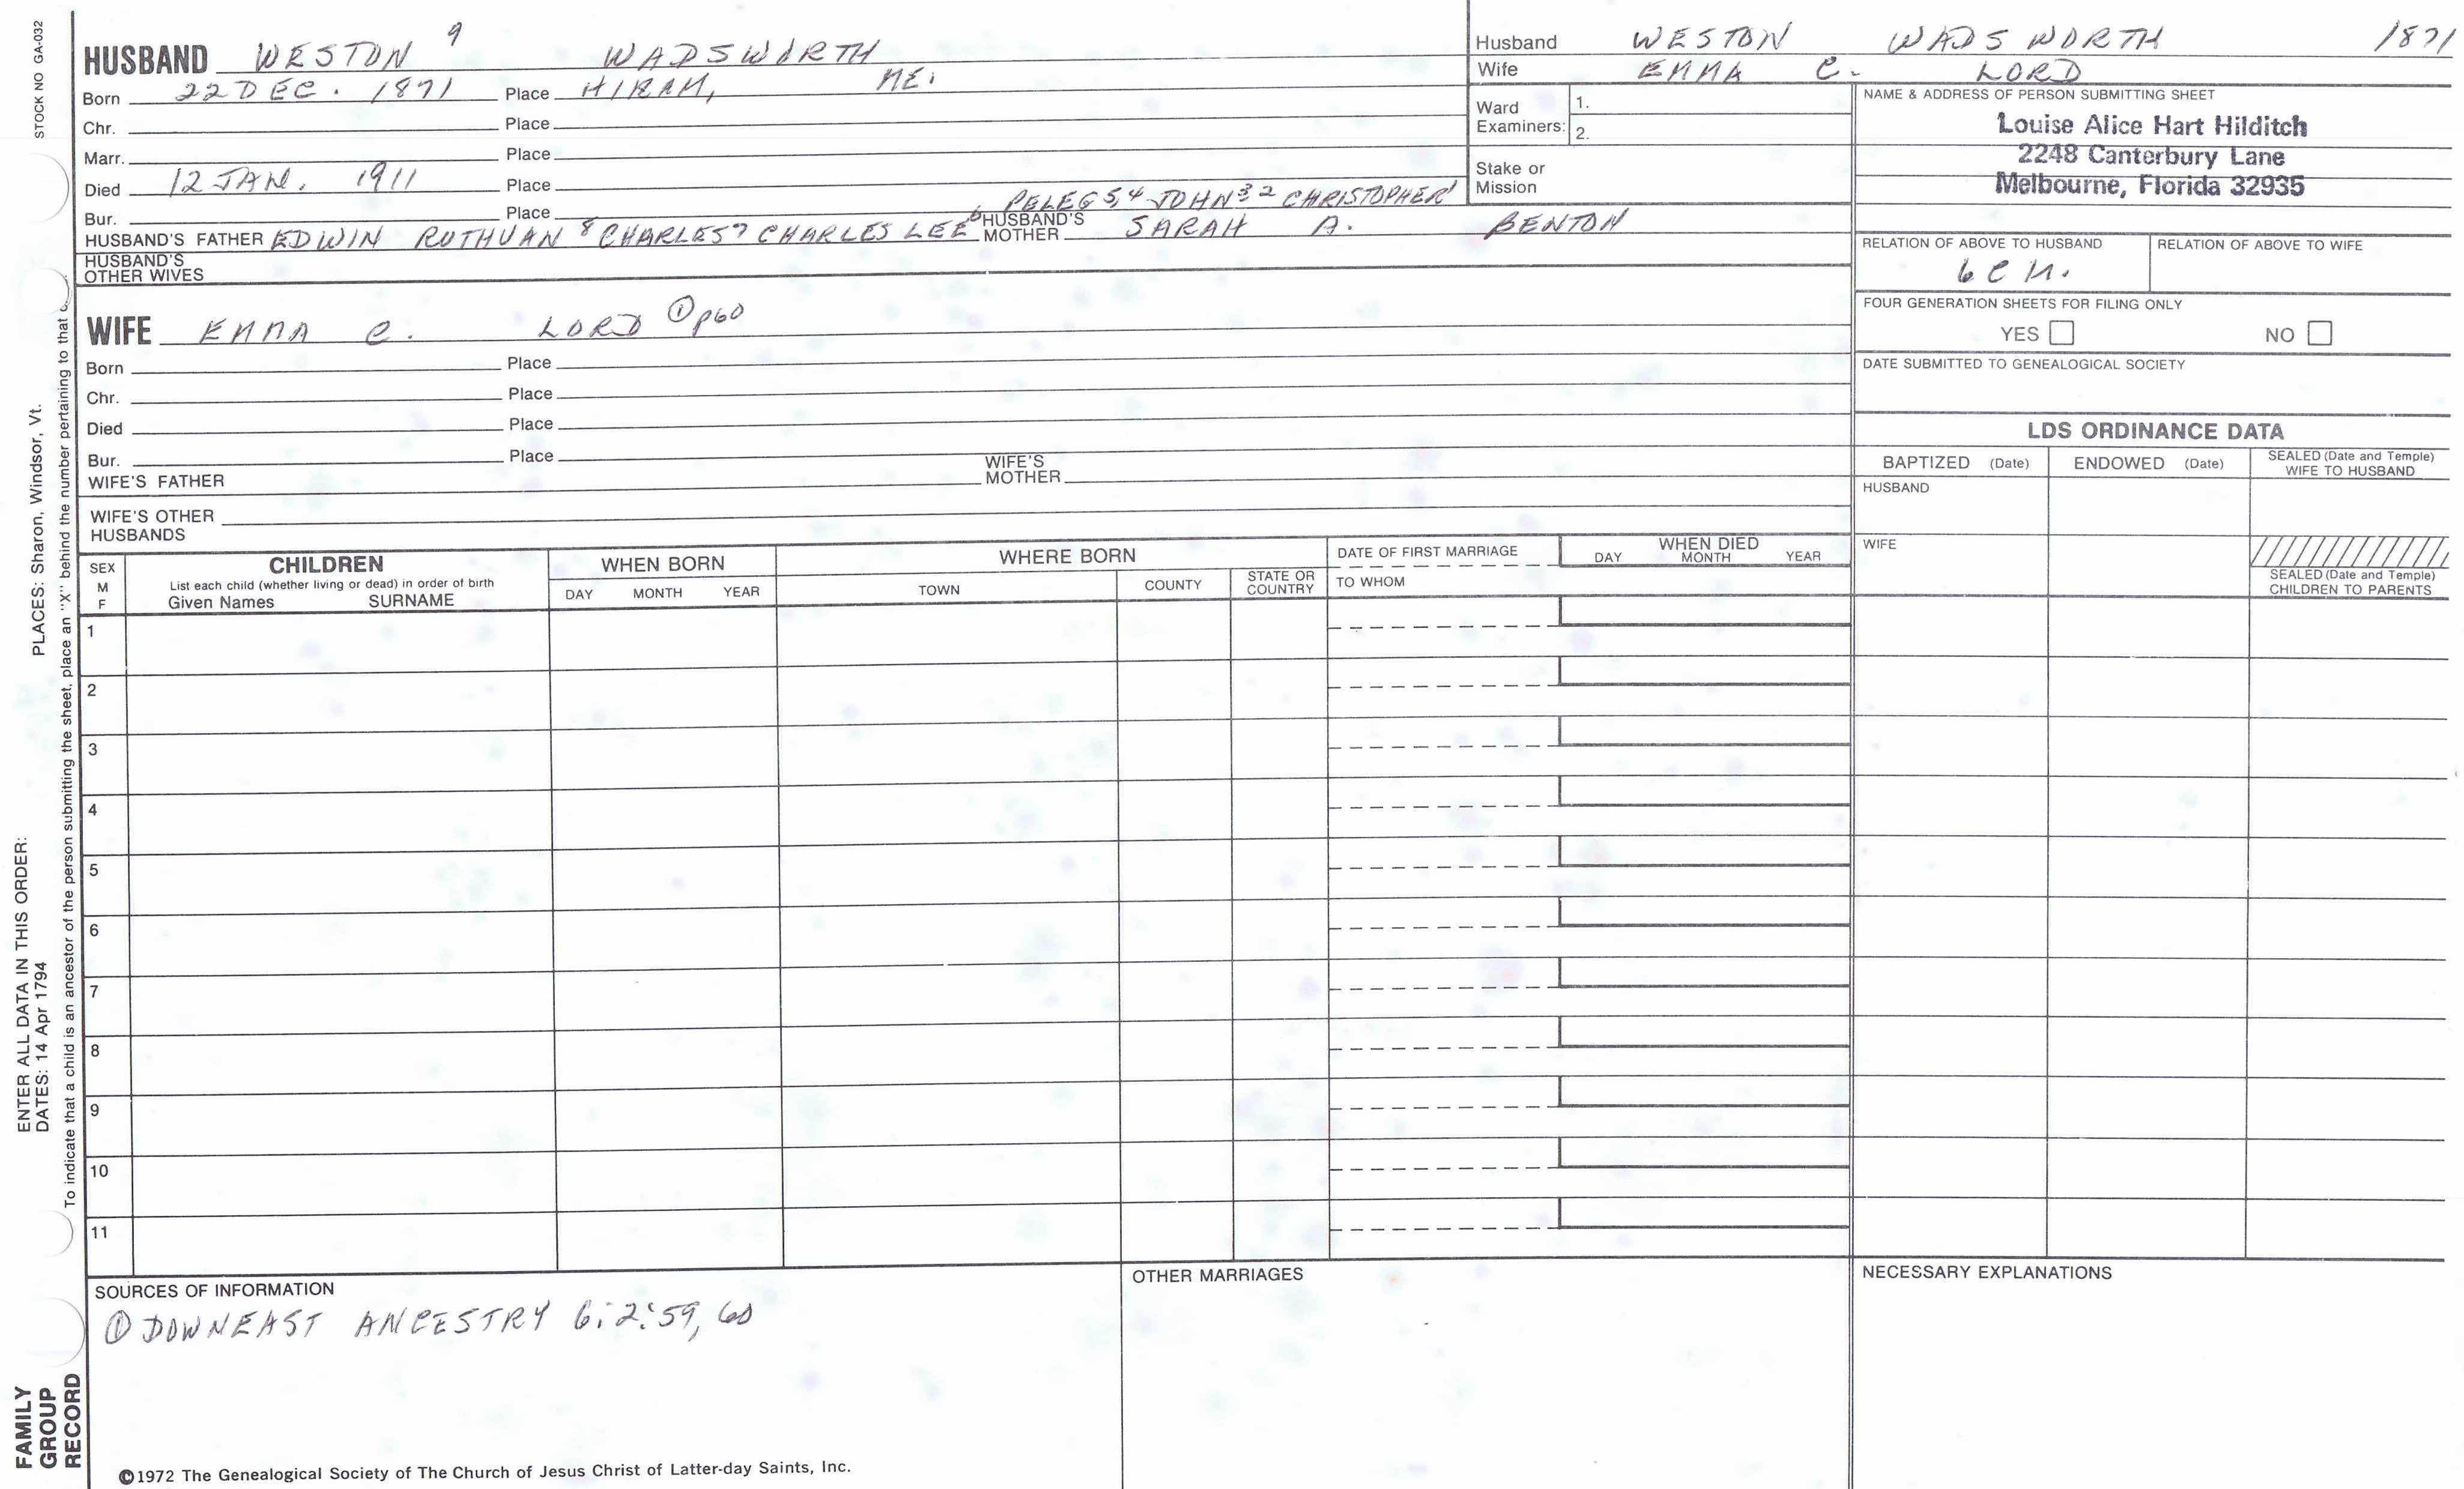 STOCK NO GA-032
HUSBAND WESTON 9 WADSWORTH
Born 22 DEC. 1871 Place HIRAM, ME.
Chr. Place
Marr. Place
Died 12 JAN. 1911 Place
Bur. Place
PELEG 5,4 JOHN 3 2 CHRISTOPHER 1
HUSBAND'S FATHER EDWIN RUTHVAN 8 CHARLES 7 CHARLES LEE 6 HUSBAND'S MOTHER SARAH A. BENTON
HUSBAND'S OTHER WIVES
WIFE EMMA C. LORD ① p60
Born Place
Chr. Place
Died Place
Bur. Place
WIFE'S FATHER WIFE'S MOTHER
WIFE'S OTHER HUSBANDS
Husband WESTON WADSWORTH 1871
Wife EMMA C. LORD
Ward Examiners: 1.
2.
Stake or Mission
NAME & ADDRESS OF PERSON SUBMITTING SHEET
Louise Alice Hart Hilditch
2248 Canterbury Lane
Melbourne, Florida 32935
RELATION OF ABOVE TO HUSBAND RELATION OF ABOVE TO WIFE
FOUR GENERATION SHEETS FOR FILING ONLY
YES NO
DATE SUBMITTED TO GENEALOGICAL SOCIETY
LDS ORDINANCE DATA
BAPTIZED (Date) ENDOWED (Date) SEALED (Date and Temple) WIFE TO HUSBAND
HUSBAND
WIFE
SEALED (Date and Temple) CHILDREN TO PARENTS
SEX M F
CHILDREN
List each child (whether living or dead) in order of birth
Given Names SURNAME
WHEN BORN
DAY MONTH YEAR
WHERE BORN
TOWN COUNTY STATE OR COUNTRY
DATE OF FIRST MARRIAGE
TO WHOM
WHEN DIED
DAY MONTH YEAR
1
2
3
4
5
6
7
8
9
10
11
SOURCES OF INFORMATION
① DOWNEAST ANCESTRY 6:2:59, 60
OTHER MARRIAGES
NECESSARY EXPLANATIONS
©1972 The Genealogical Society of The Church of Jesus Christ of Latter-day Saints, Inc.
FAMILY
GROUP
RECORD
ENTER ALL DATA IN THIS ORDER:
DATES: 14 Apr 1794
PLACES: Sharon, Windsor, Vt.
To indicate that a child is an ancestor of the person submitting the sheet, place an "X" behind the number pertaining to that